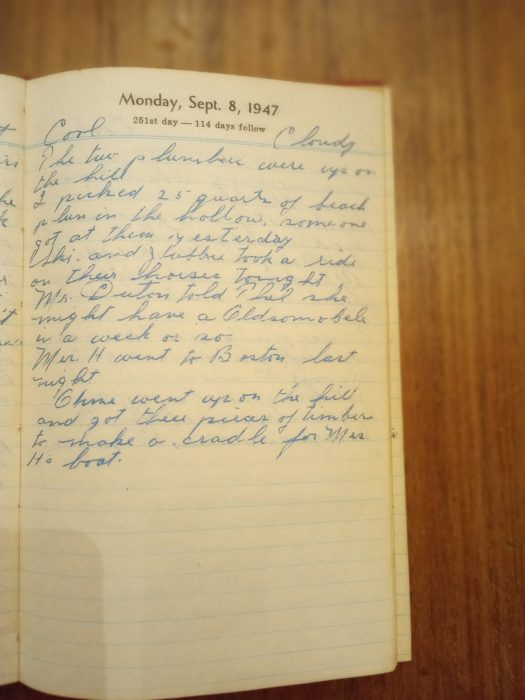 Monday, Sept. 8, 1947
251st day — 114 days follow
Cool Cloudy
The two plumbers were up on
the hill
I picked 25 quarts of beach
plum in the hollow. someone
got at them yesterday
Ski. and took a ride
on their horses tonight
Mr. Duton told Phil she
might have a Oldsomobele
in a week or so.
Mrs. H went to Boston last
night
went up on the hill
and got three pieces of timber
to make a cradle for Mrs
Hs boat.